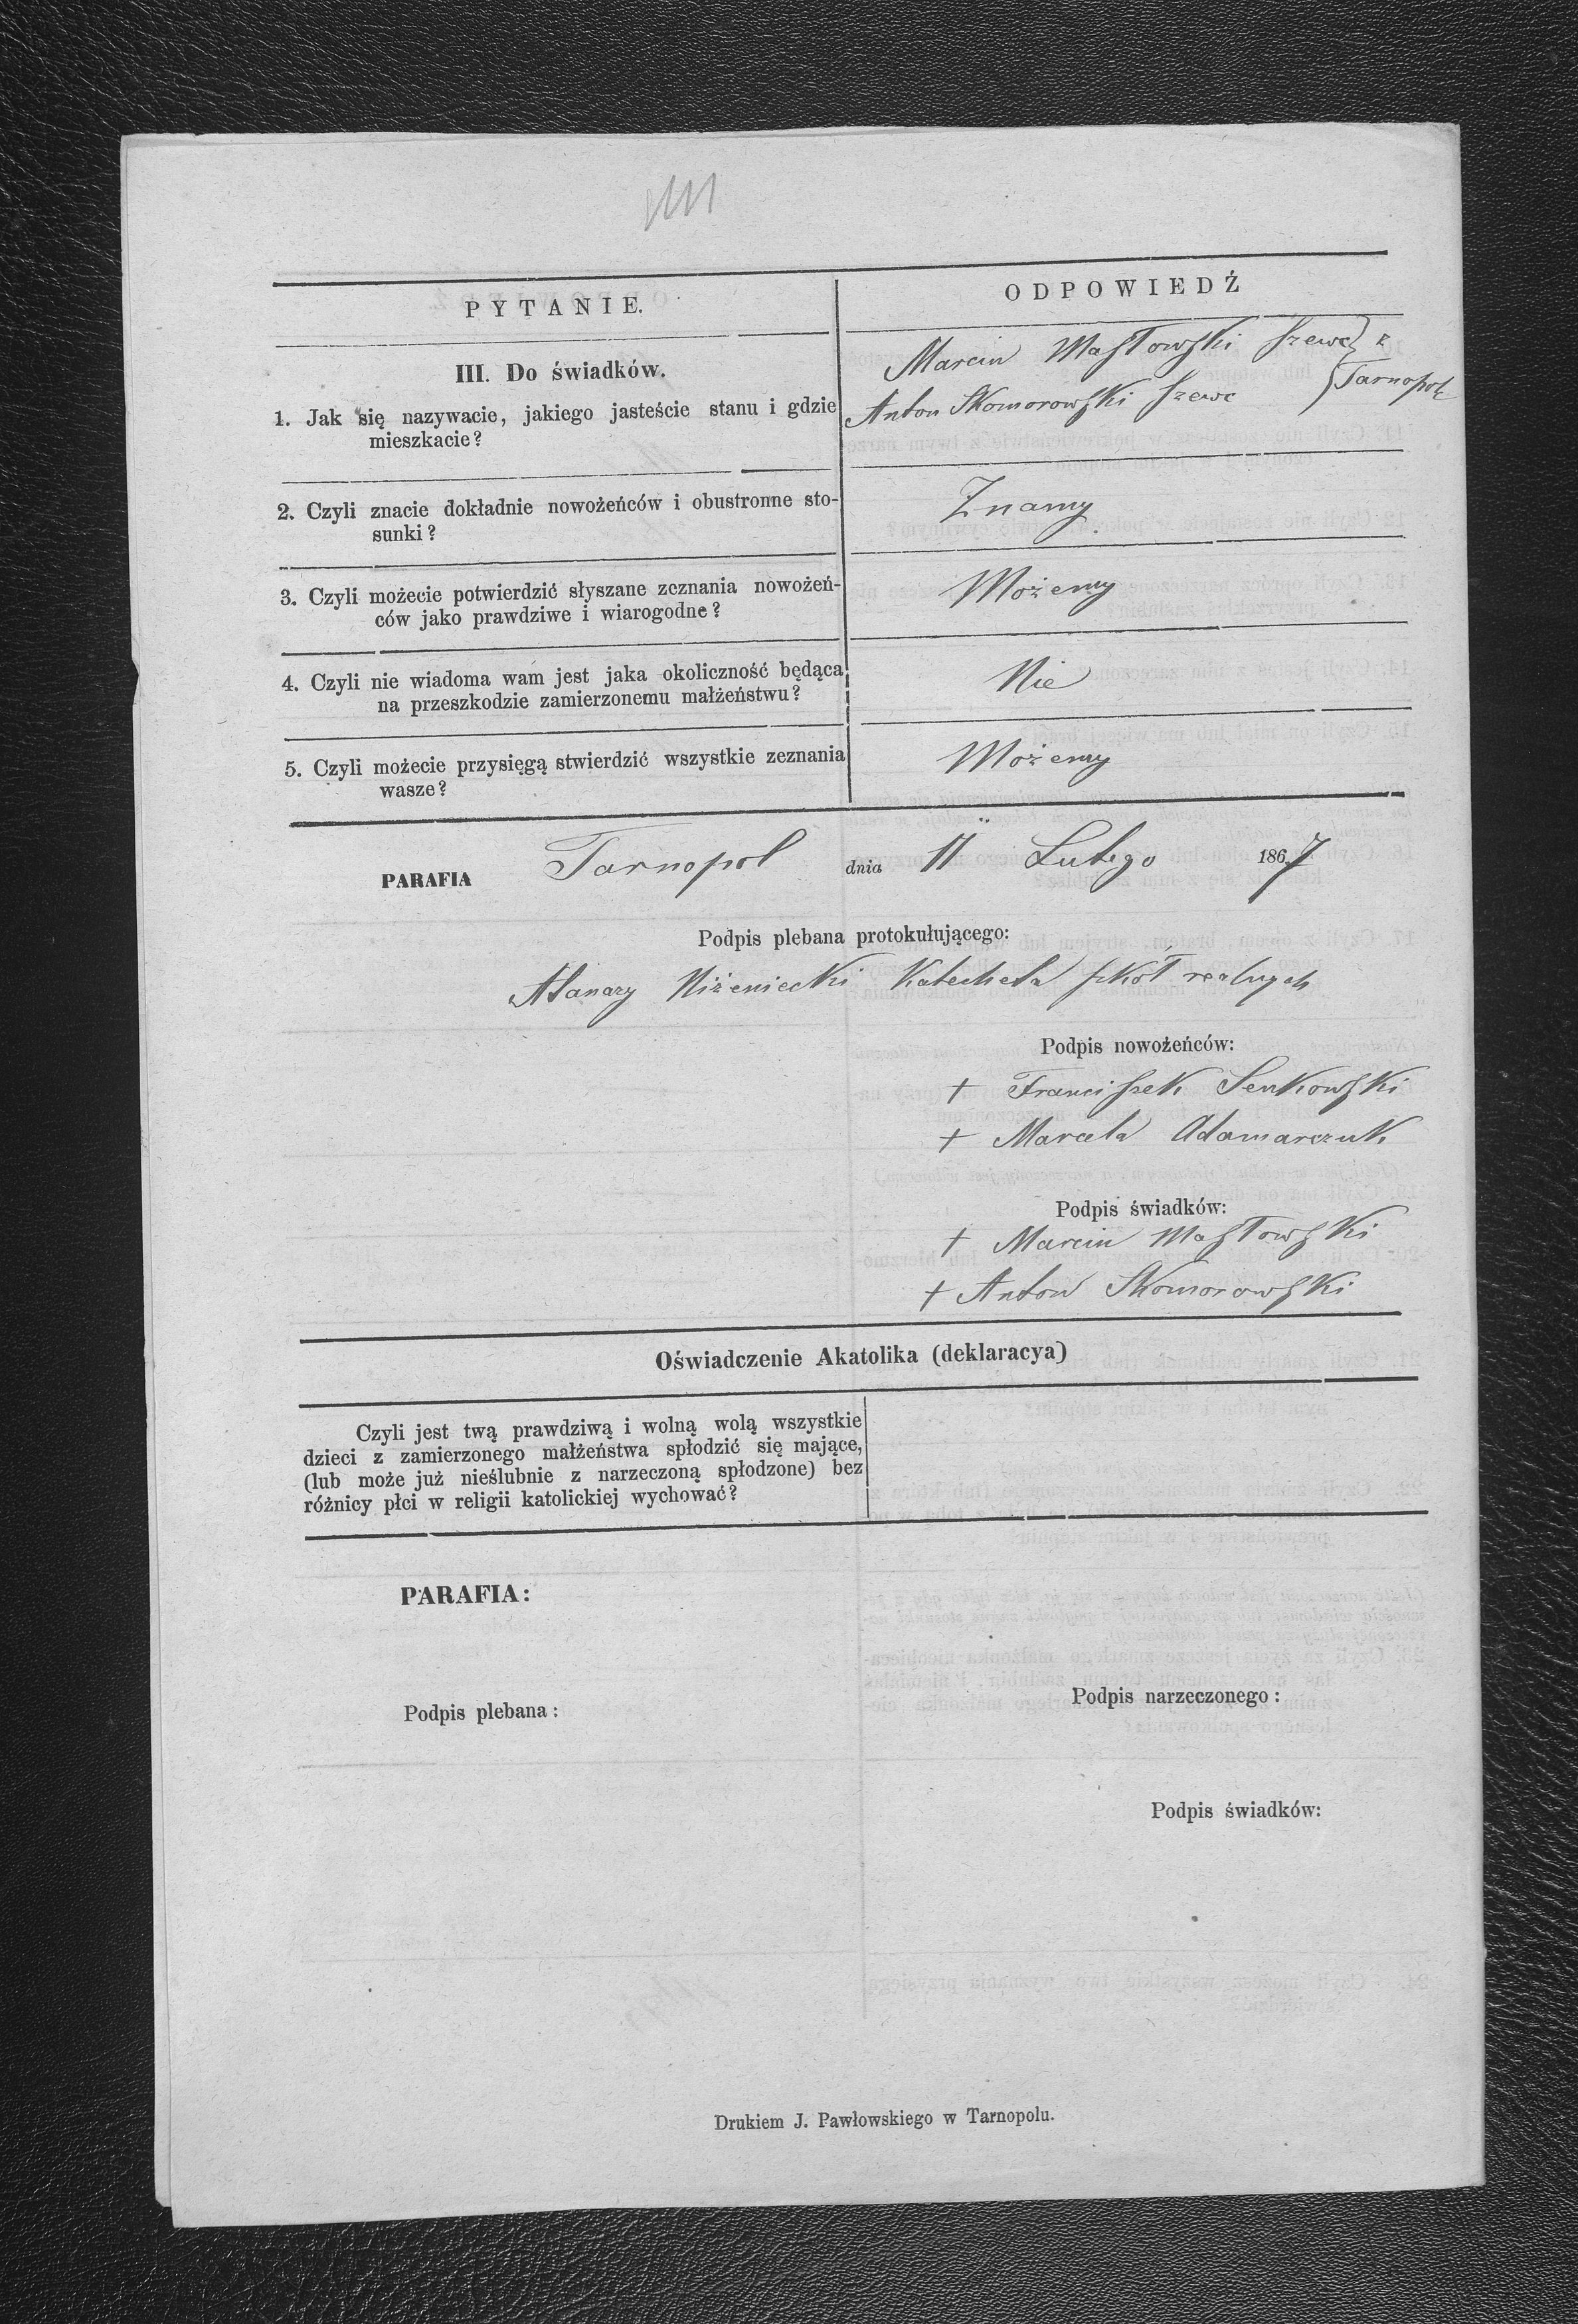 PYTANIE.
ODPOWIEDŹ
III. Do świadków.
1. Jak się nazywacie, jakiego jasteście stanu i gdzie
mieszkacie?
Marcin Masłowski szewc } z
Anton Skomorowski szewc } Tarnopola
2. Czyli znacie dokładnie nowożeńców i obustronne sto-
sunki?
Znamy
3. Czyli możecie potwierdzić słyszane zeznania nowożeń-
ców jako prawdziwe i wiarogodne?
Możemy
4. Czyli nie wiadoma wam jest jaka okoliczność będąca
na przeszkodzie zamierzonemu małżeństwu?
Nie
5. Czyli możecie przysięgą stwierdzić wszystkie zeznania
wasze?
Możemy
PARAFIA Tarnopol dnia 11 Lutego 1867
Podpis plebana protokułującego:
Atanazy Niżeniecki Katecheta szkół realnych
Podpis nowożeńców:
+ Franciszek Senkowski
+ Marcela Adamarczuk
Podpis świadków:
+ Marcin Masłowski
+ Anton Skomorowski
Oświadczenie Akatolika (deklaracya)
Czyli jest twą prawdziwą i wolną wolą wszystkie
dzieci z zamierzonego małżeństwa spłodzić się mające,
(lub może już nieślubnie z narzeczoną spłodzone) bez
różnicy płci w religii katolickiej wychować?
PARAFIA:
Podpis plebana:
Podpis narzeczonego:
Podpis świadków:
Drukiem J. Pawłowskiego w Tarnopolu.